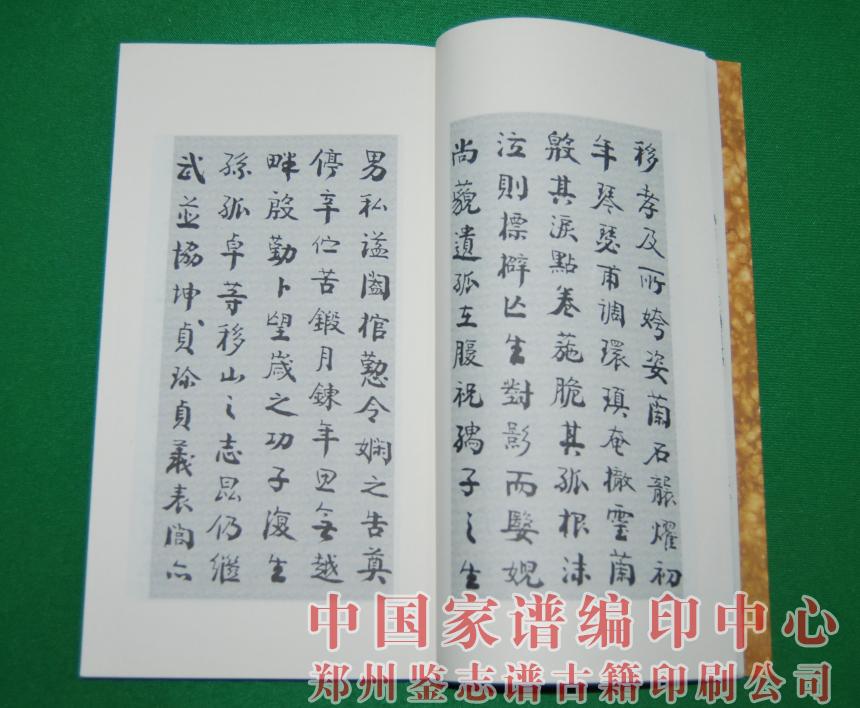 移孝及所姱姿蘭石韞燿初
年琴瑟甫調環瑱奄撤雲蘭
般其淚點卷葹脆其孤根沫
泣則摽擗亾生對影而嫛婗
尚藐遺孤在腹祝孺子之生
男私謚闔棺懃令嫻之告奠
停辛伫苦鍛月鍊年思無越
畔殷勤卜望歲之功子復生
孫孤卓等移山之志昆仍繼
武並協坤貞貞義表閭
中国家谱编印中心
郑州鉴志谱古籍印刷公司